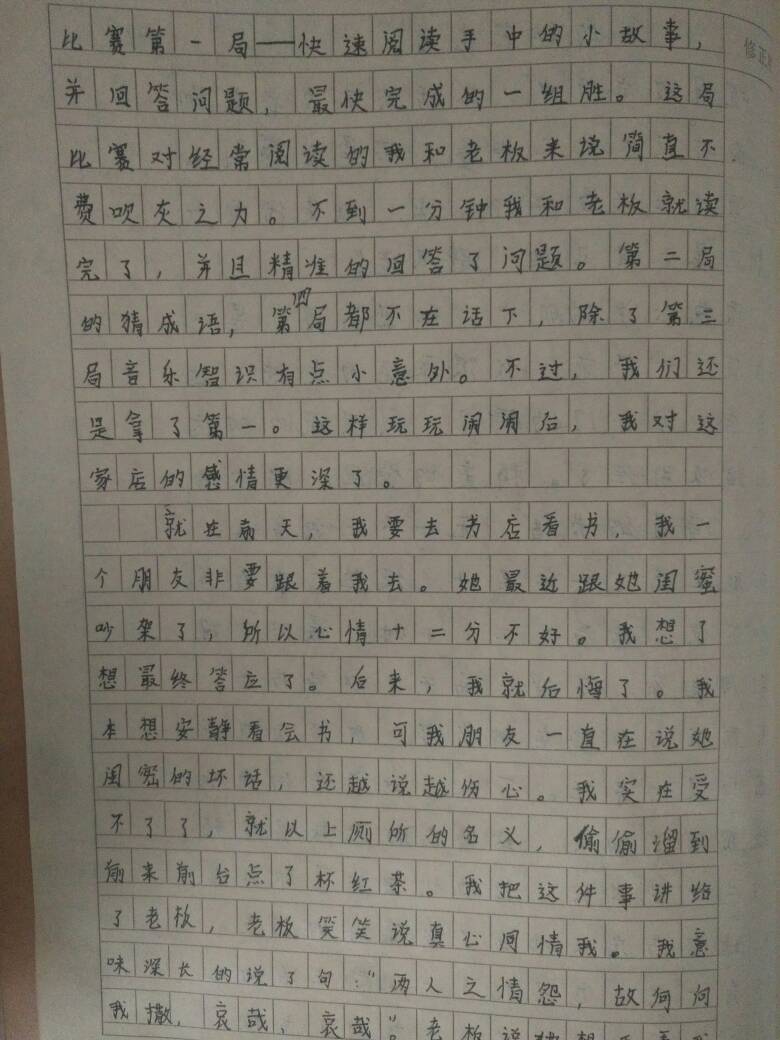 比赛第一局——快速阅读手中的小故事，
修正
并回答问题，最快完成的一组胜。这局
比赛对经常阅读的我和老板来说简直不
费吹灰之力。不到一分钟我和老板就读
完了，并且精准的回答了问题。第二局
的猜成语，第四局都不在话下，除了第三
局音乐智识有点小意外。不过，我们还
是拿了第一。这样玩玩闹闹后，我对这
家店的感情更深了。
就在前天，我要去书店看书，我一
个朋友非要跟着我去。她最近跟她闺蜜
吵架了，所以心情十二分不好。我想了
想最终答应了。后来，我就后悔了。我
本想安静看会书，可我朋友一直在说她
闺密的坏话，还越说越伤心。我实在受
不了了，就以上厕所的名义，偷偷溜到
前来前台点了杯红茶。我把这件事讲给
了老板，老板笑笑说真心同情我。我意
味深长的说了句：“两人之情怨，故何向
我撒，哀哉，哀哉”。老板说